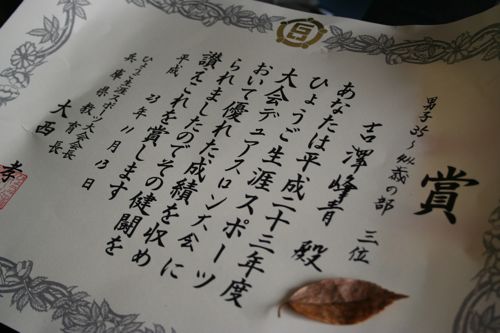 賞
男子35〜44歳の部 三位
吉澤峰青 殿
あなたは平成二十三年度
ひょうご生涯スポーツ
大会デュアスロン大会に
おいて優れた成績を収め
られましたのでその健闘を
讃えこれを賞します
平成 23年11月13日
ひょうご生涯スポーツ大会会長
兵庫県教育長
大西 孝